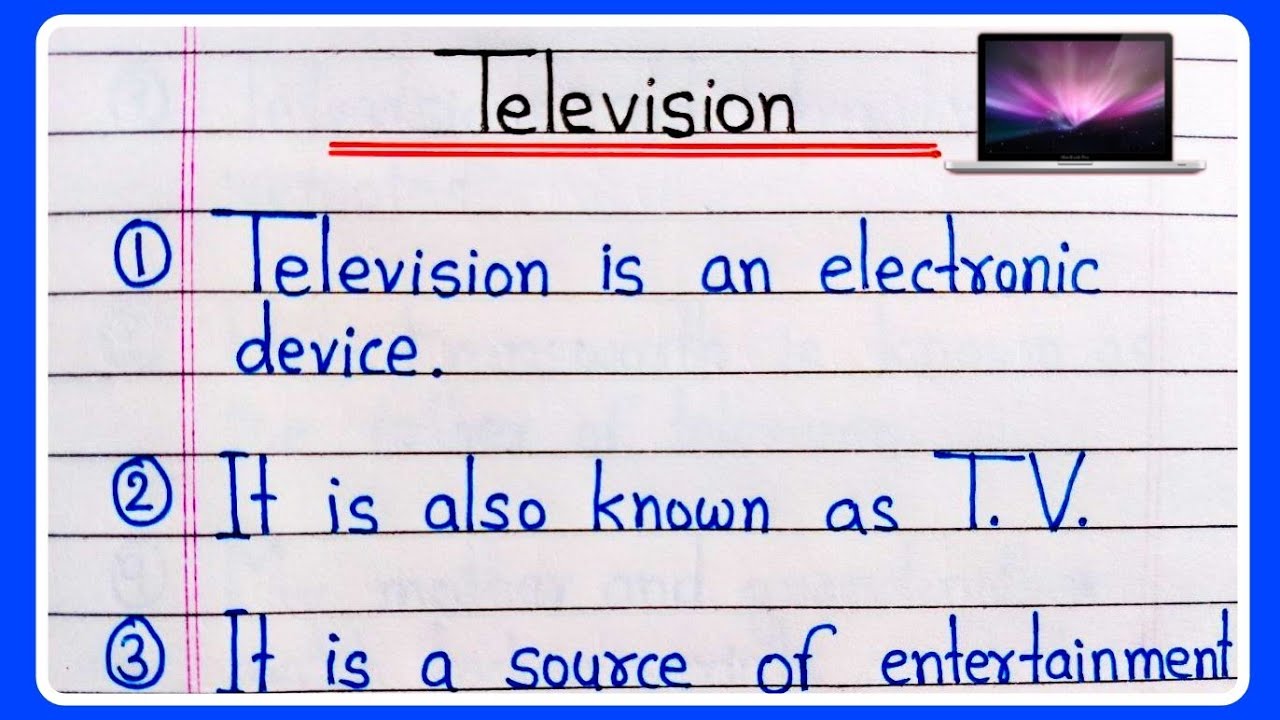 Television
① Television is an electronic
device.
② It is also known as T.V.
③ It is a source of entertainment